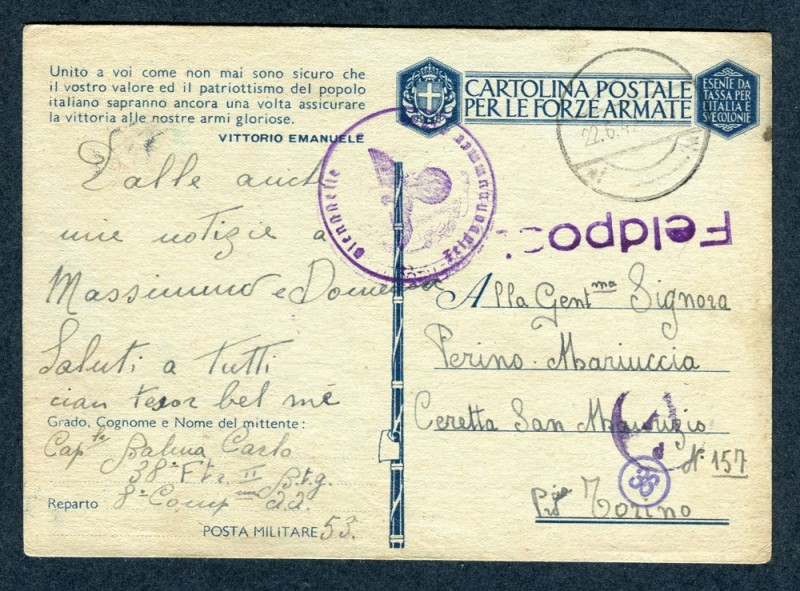 Unito a voi come non mai sono sicuro che
il vostro valore ed il patriottismo del popolo
italiano sapranno ancora una volta assicurare
la vittoria alle nostre armi gloriose.
VITTORIO EMANUELE
CARTOLINA POSTALE
PER LE FORZE ARMATE
ESENTE DA
TASSA PER
L'ITALIA E
SVE COLONIE
22.6.4
Dienststelle
Feldpostnummer
Feldpos
Dalle anche
mie notizie a
Massimino e
Saluti a tutti
ciau tesor bel mè
Grado, Cognome e Nome del mittente:
Cap.le Balma Carlo
38° Ftr. II Btg.
Reparto 8ª Comp
POSTA MILITARE 53.
Alla Gent.ma Signora
Perino Mariuccia
Ceretta San Maurizio
N° 157
Torino